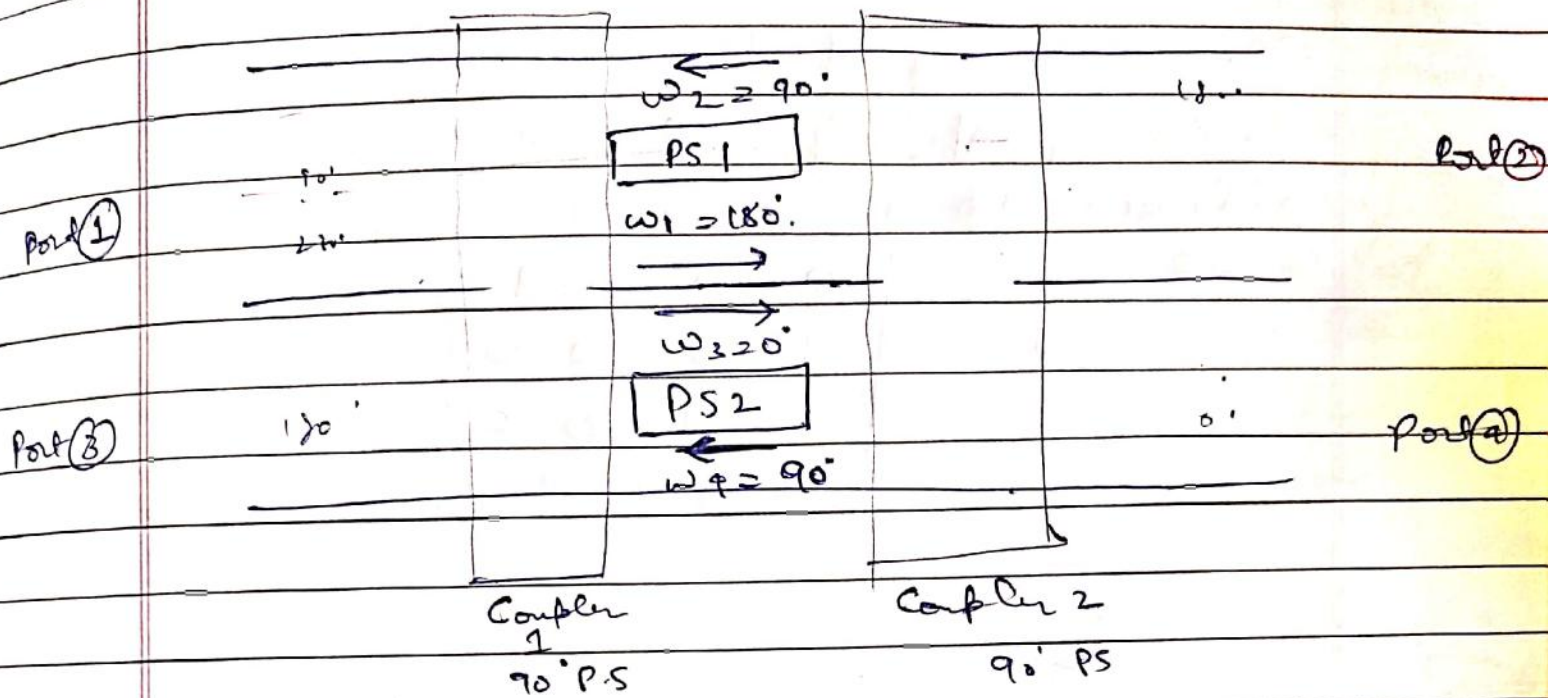 ω2 = 90°
PS 1
Port ②
Port ①
ω1 = 180°.
ω3 = 0°
PS2
Port ③
180°
0°
Port ④
ω4 = 90°
Coupler
1
90° P.S
Coupler 2
90° PS